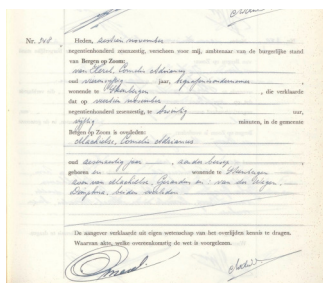 Nr. 248
Heden, zestien november
negentienhonderd zesenzestig, verscheen voor mij, ambtenaar van de burgerlijke stand
van Bergen op Zoom:
van Hoek, Cornelis Adrianus
oud jaar, begrafenisondernemer
wonende te Steenbergen, die verklaarde
dat op veertien november
negentienhonderd zesenzestig, te twintig uur,
vijftig minuten, in de gemeente
Bergen op Zoom is overleden:
Machielse, Cornelis Adrianus
oud zesenzestig jaar, zonder beroep,
geboren en wonende te Steenbergen
zoon van Machielse, Gerardus en van der
beiden overleden
De aangever verklaarde uit eigen wetenschap van het overlijden kennis te dragen.
Waarvan akte, welke overeenkomstig de wet is voorgelezen.